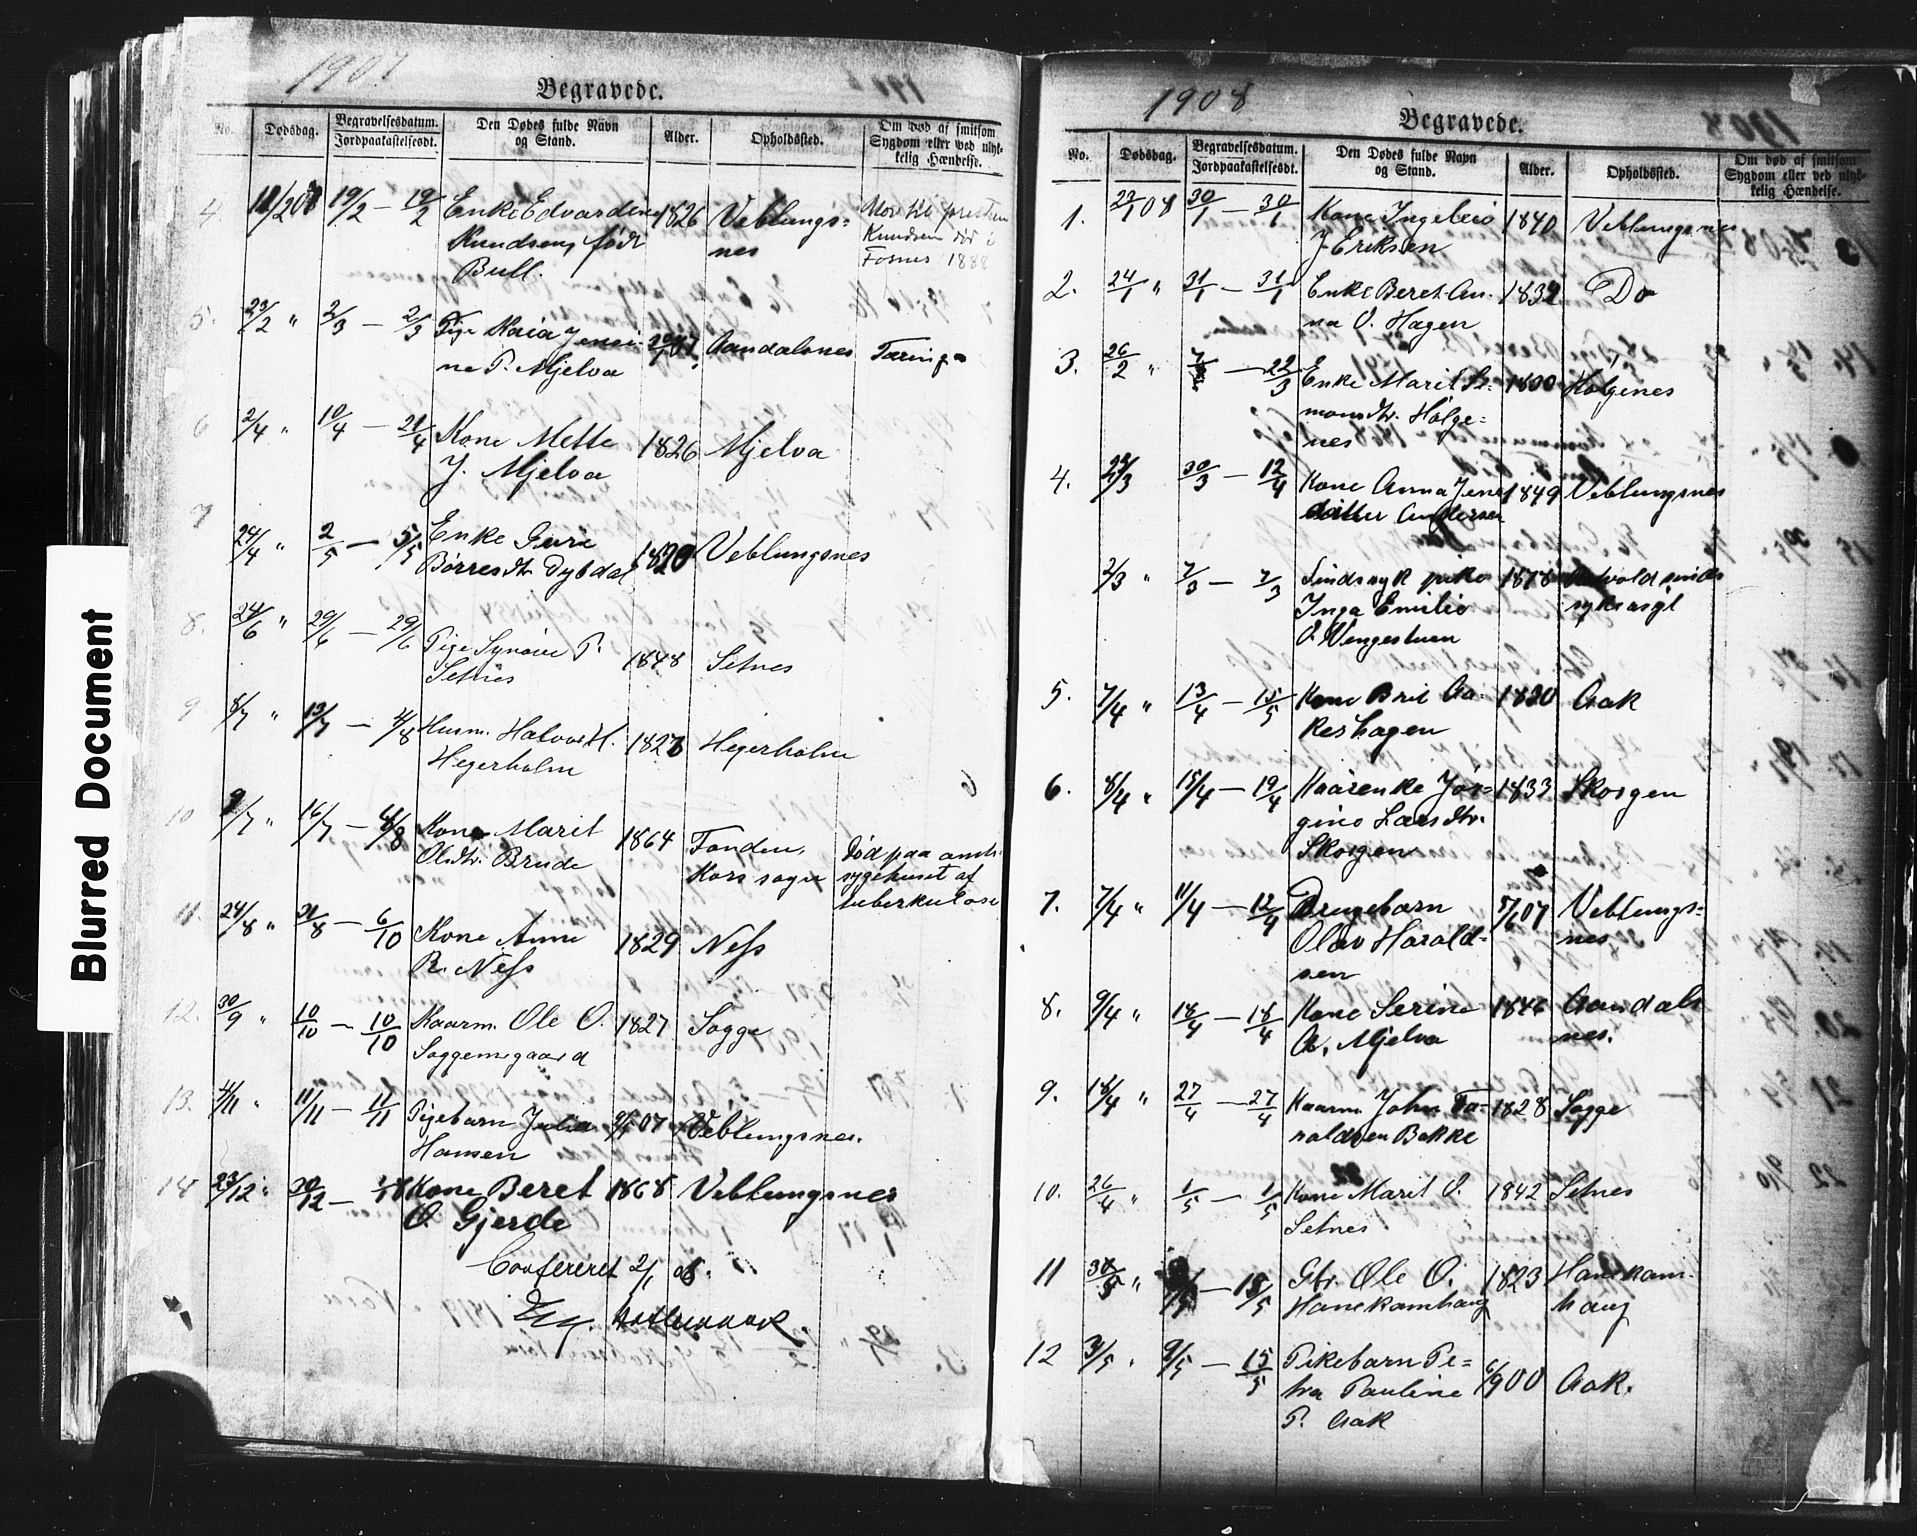 1907
Begravede.
No.
Dødsdag.
Begravelsesdatum.
Jordpaakastelsesdt.
Den Dødes fulde Navn
og Stand.
Alder.
Opholdssted.
Om død af smitsom
Sygdom eller ved ulyk-
kelig Hændelse.
4 19/2 — 19/2 Enke Edvardine 1826 Veblungs-
Knudsen, født nes
Bull.
Knudsen død i
Fosnes 1888
5. 23/2 " 2/3 — 2/3 Pige Maria Jensi- Aandalsnes Tæring
ne P. Mjelva
6 2/4 " 10/4 — 21/4 Kone Mette 1826 Mjelva
J. Mjelva
7 24/4 " 2/5 — 5/5 Enke Guri 1820 Veblungsnes
Børresdtr. Dybdal
8. 24/6 " 29/6 — 29/6 Pige Synøve P. 1848 Setnes
Setnes
9 8/7 " 13/7 — 4/8 Husm. Halvor H. 1823 Hegerholm
Hegerholm
10 9/7 " 16/7 — 4/8 Kone Marit 1864 Fonden,
Olsdtr. Brude Kors sogn
Død paa amts
sygehuset af
tuberkulose
11. 24/8 " 31/8 — 6/10 Kone Anne 1829 Ness
R. Ness
12. 30/9 " 10/10 — 10/10 Kaarm. Ole O. 1827 Sogge
Soggemsgaard
13. 4/11 " 11/11 — 11/11 Pigebarn Julia 07 Veblungsnes.
Hansen
14 23/12 " 30/12 — Kone Beret 1868 Veblungsnes
O. Gjerde
Confereret 2/1 08.
1908
Begravede.
No.
Dødsdag.
Begravelsesdatum.
Jordpaakastelsesdt.
Den Dødes fulde Navn
og Stand.
Alder.
Opholdssted.
Om død af smitsom
Sygdom eller ved ulyk-
kelig Hændelse.
1. 22/1 08 30/1 — 30/1 Kone Ingebrio 1840 Veblungsnes
J. Eriksen
2. 24/1 " 31/1 — 31/1 Enke Beret An- 1832 Do
na O. Hagen
3. 26/2 " — 22/3 Enke Marit Si- 1800 Holgenes
monsdtr. Holge-
nes
4. 22/3 30/3 — 12/4 Kone Anna Jens 1849 Veblungsnes
datter Andersen
2/3 " 7/3 — 7/3 Sindssyk pike 1878 sinds
Inga Emilie sykeasyl
O. Vengestuen
5. 7/4 " 13/4 — 15/5 Kone Brit Aa- 1820 Aak
keshagen
6. 8/4 " 15/4 — 19/4 Kaarenke Jør- 1833 Skorgen
gine Larsdtr.
Skorgen
7. 7/4 " 11/4 — 12/4 Drengebarn 07 Veblungs-
Olav Harald- nes
sen
8. 9/4 " 18/4 — 18/4 Kone Serine 1846 Aandals
A. Mjelva nes.
9. 18/4 " 27/4 — 27/4 Kaarm. John Ta- 1828 Sogge
raldsen Bakke
10. 26/4 " 1/5 — 1/5 Kone Marit O. 1842 Setnes
Setnes
11 " — 13/5 Gbr. Ole O. 1823 Hanekam-
Hanekamhaug haug
12 3/5 " 9/5 — 15/5 Pikebarn Pe- 6/9 00 Aak.
tra Pauline
P. Aak
Blurred Document